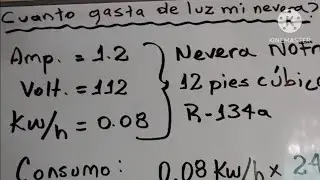 Cuanto gasta de luz mi nevera?
KINEMASTER
Amp. = 1.2
Nevera NoFr
Volt. = 112
12 pies cúbico
Kw/h = 0.08
R-134a
Consumo: 0.08 Kw/h x 24